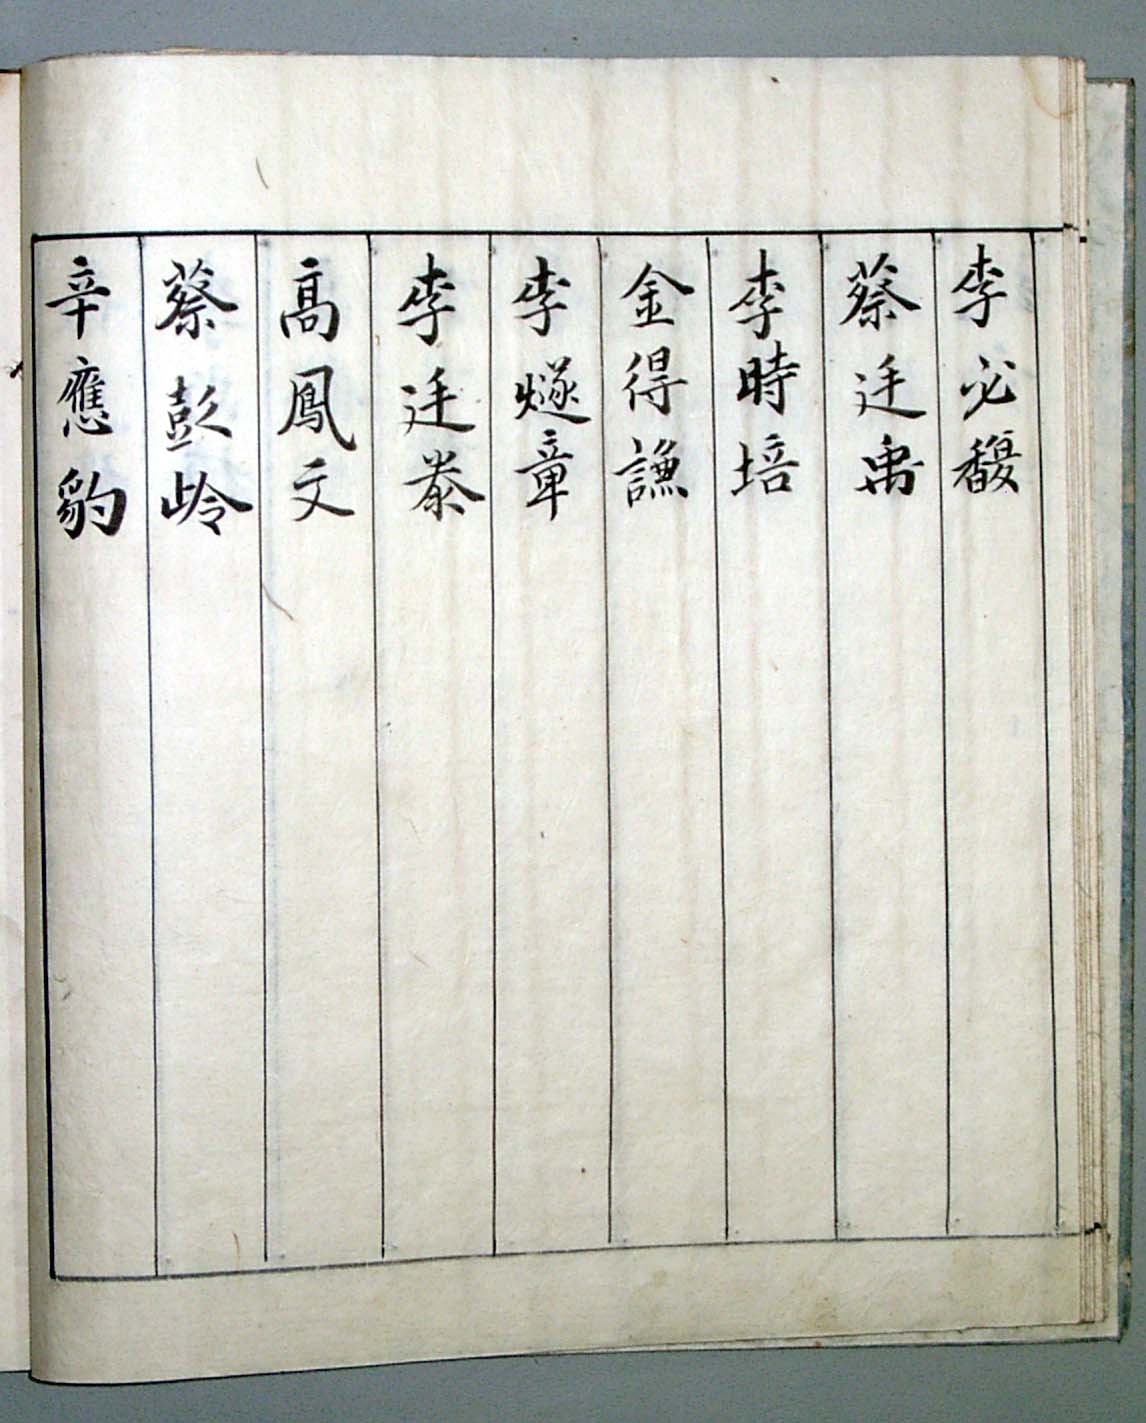 李必馥
蔡廷禹
李時培
金得謙
李燧章
李廷泰
高鳳文
蔡彭岭
辛應豹